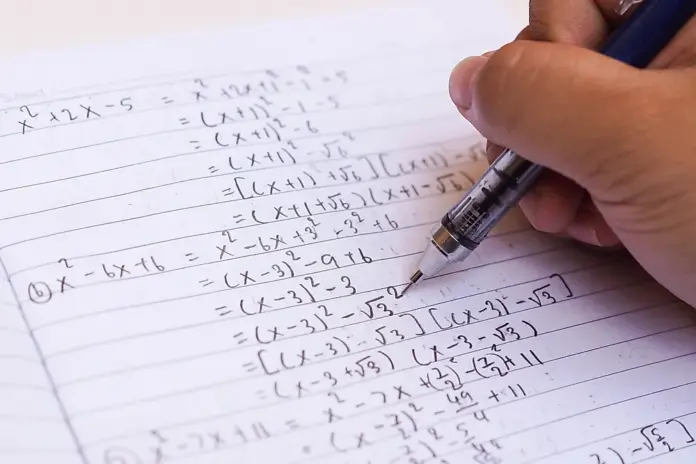 x² + 2x - 5 = x² + 2x + 1² - 1² - 5
= (x+1)² - 1 - 5
= (x+1)² - 6
= (x+1)² - √6²
= [(x+1) + √6] [(x+1) - √6
= (x+1+√6) (x+1-√6)
(b) x² - 6x + 6 = x² - 6x + 3² - 3² + 6
= (x-3)² - 9 + 6
= (x-3)² - 3
= (x-3)² - √3²
= [(x-3) - √3] [(x-3) - √3]
= (x-3+√3) (x-3-√3)
x² - 7x + 11 = x² - 7x + (7/2)² - (7/2)² + 11
= (x-7/2)² - 49/4 + 11